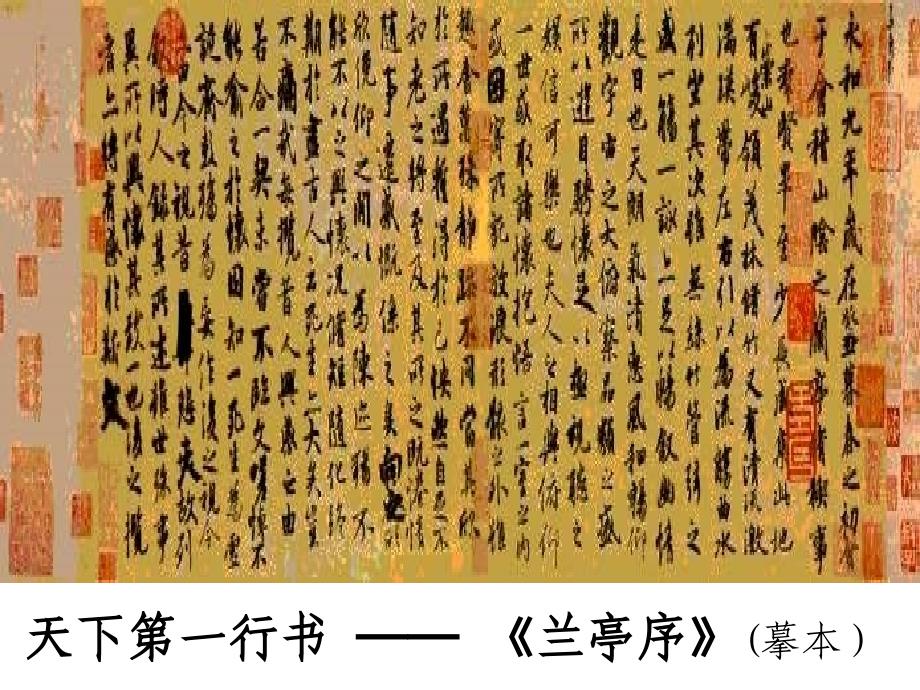 永和九年歲在癸丑暮春之初會
于會稽山陰之蘭亭脩稧事
也羣賢畢至少長咸集此地
有崇山峻領茂林脩竹又有清流激
湍暎帶左右引以為流觴曲水
列坐其次雖無絲竹管弦之
盛一觴一詠亦足以暢敘幽情
是日也天朗氣清惠風和暢仰
觀宇宙之大俯察品類之盛
所以遊目騁懷足以極視聽之
娛信可樂也夫人之相與俯仰
一世或取諸懷抱悟言一室之內
或因寄所託放浪形骸之外雖
趣舍萬殊靜躁不同當其欣
於所遇蹔得於己怏然自足不
知老之將至及其所之既惓情
隨事遷感慨係之矣向之所
欣俛仰之閒以為陳迹猶不
能不以之興懷況脩短隨化終
期於盡古人云死生亦大矣豈
不痛哉每攬昔人興感之由
若合一契未嘗不臨文嗟悼不
能喻之於懷固知一死生為虛
誕齊彭殤為妄作後之視今
今之視昔悲夫故列
敘時人錄其所述雖世殊事
異所以興懷其致一也後之攬
者亦將有感於斯文
天下第一行书 —— 《兰亭序》(摹本)